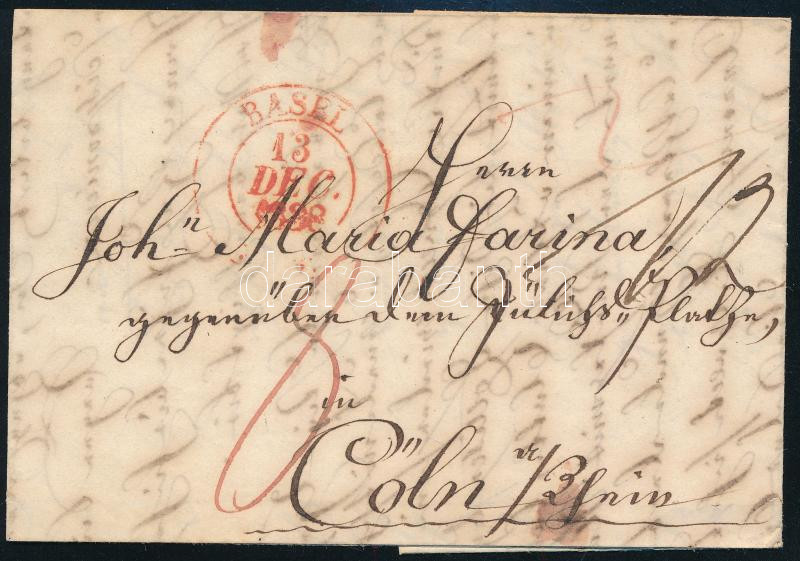 BASEL
13
DEC.
Herrn
Joh.n Maria Farina,
gegenüber dem Jülichs Platze,
in
Cöln a/Rhein
8
darabanth